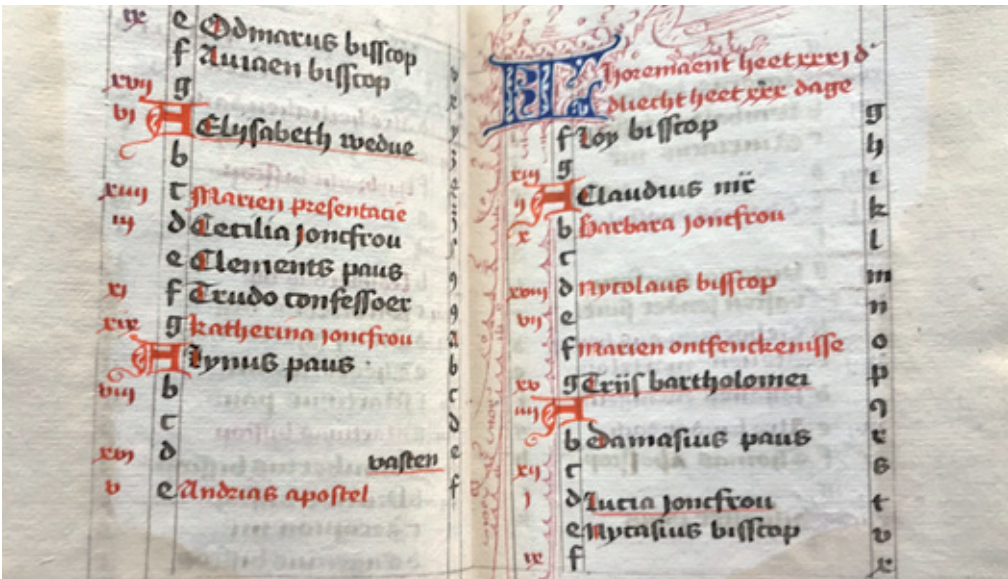 ix e Odmarus bisscop
f Auiaen bisscop
xvij g
vj A Elysabeth wedue
b
xiiij c Marien presentacie
iij d Cecilia joncfrou
e Clements paus
xj f Trudo confessoer
xix g katherina joncfrou
A Lynus paus
viij b
c
xvj d vasten
v e Andrias apostel
horemaent heet xxxj d
dliecht heet xxx dage
f loy bisscop g
g h
xiij A Claudius mr i
ij b barbara joncfrou k
x c l
d nycolaus bisscop m
xviij e n
vij f marien ontfenckenisse o
g Eriis bartholomei p
xv A q
iiij b damasius paus r
c s
xij d Lucia joncfrou t
j e nycasius bisscop v
ix f x